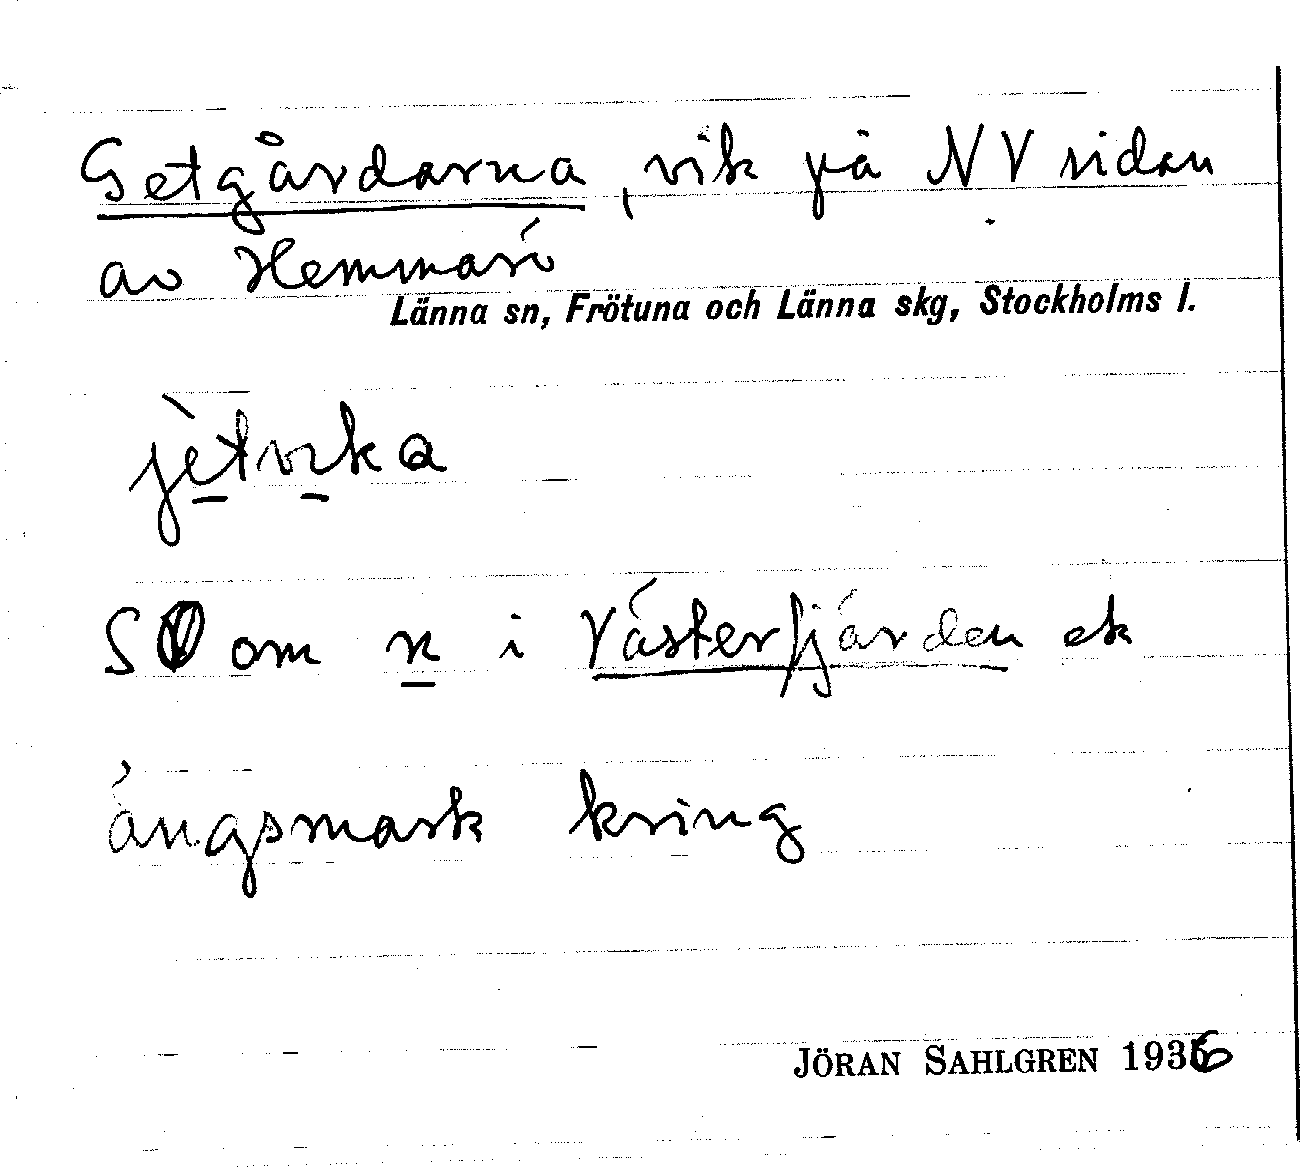 Getgårdarna, vik på NV sidan
av Hemmarö
Länna sn, Frötuna och Länna skg, Stockholms l.
jètvika
SO om n i Västerfjärden ek
ängsmark kring
JÖRAN SAHLGREN 1936